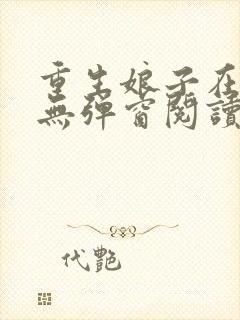 重生娘子在
無彈窗閱讀
代艷